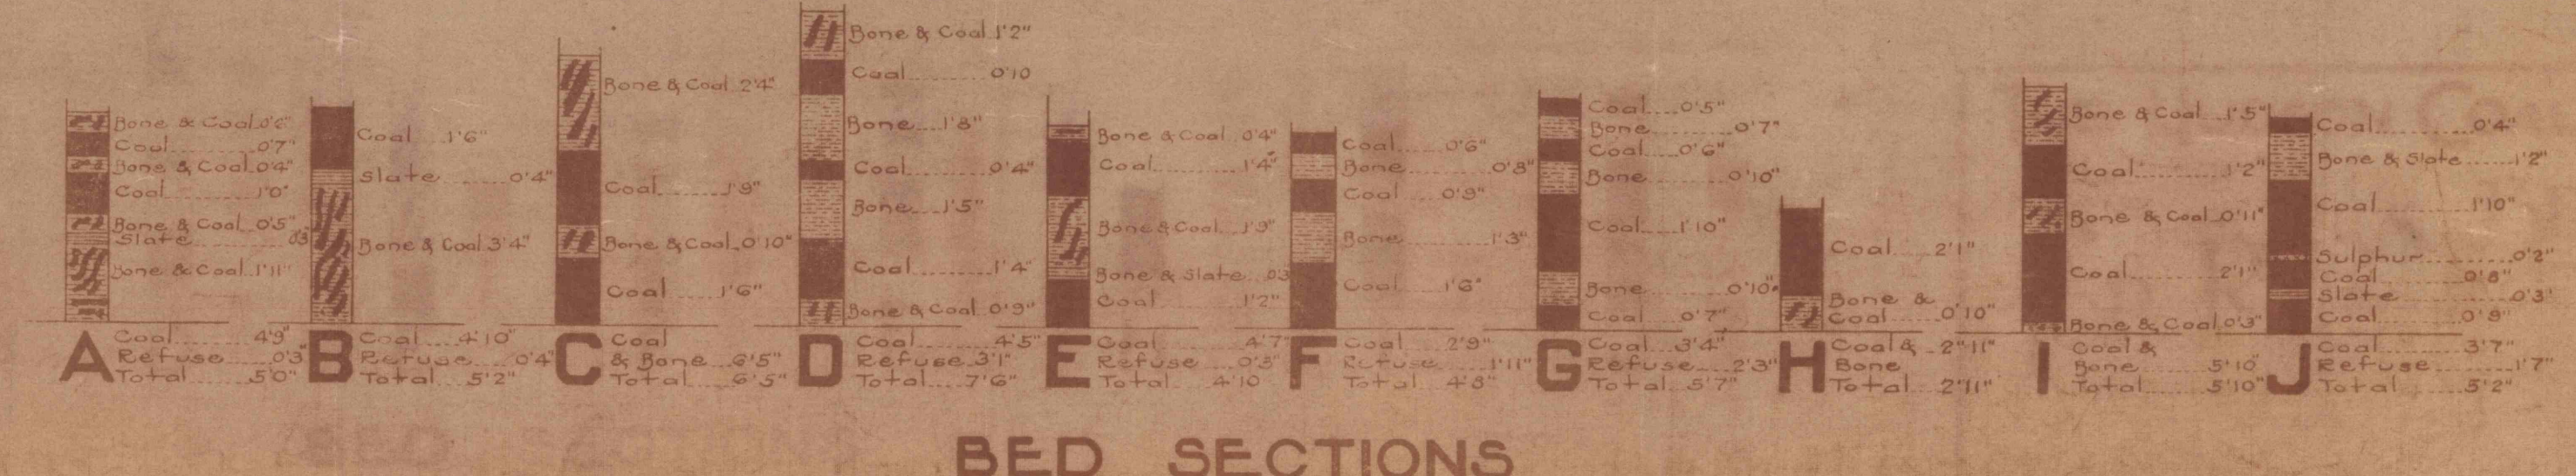 Bone & Coal 0'6"
Coal 0'7"
Bone & Coal 0'4"
Coal 1'0"
Bone & Coal 0'5"
Slate 0'3
Bone & Coal 1'11"
A
Coal 4'9"
Refuse 0'3"
Total 5'0"
Coal 1'6"
Slate 0'4"
Bone & Coal 3'4"
B
Coal 4'10"
Refuse 0'4"
Total 5'2"
Bone & Coal 2'4"
Coal 1'9"
Bone & Coal 0'10"
Coal 1'6"
C
Coal
& Bone 6'5"
Total 6'5"
Bone & Coal 1'2"
Coal 0'10
Bone 1'8"
Coal 0'4"
Bone 1'5"
Coal 1'4"
Bone & Coal 0'9"
D
Coal 4'5"
Refuse 3'1"
Total 7'6"
Bone & Coal 0'4"
Coal 1'4"
Bone & Coal 1'9"
Bone & Slate 0'3
Coal 1'2"
E
Coal 4'7"
Refuse 0'3"
Total 4'10
Coal 0'6"
Bone 0'8"
Coal 0'9"
Bone 1'3"
Coal 1'6"
F
Coal 2'9"
Refuse 1'11"
Total 4'8"
Coal 0'5"
Bone 0'7"
Coal 0'6"
Bone 0'10"
Coal 1'10"
Bone 0'10"
Coal 0'7"
G
Coal 3'4"
Refuse 2'3"
Total 5'7"
Coal 2'1"
Bone &
Coal 0'10"
H
Coal & 2'11"
Bone
Total 2'11"
Bone & Coal 1'5"
Coal 1'2"
Bone & Coal 0'11"
Coal 2'1"
Bone & Coal 0'3"
I
Coal &
Bone 5'10"
Total 5'10"
Coal 0'4"
Bone & Slate 1'2"
Coal 1'10"
Sulphur 0'2"
Coal 0'8"
Slate 0'3'
Coal 0'9"
J
Coal 3'7"
Refuse 1'7"
Total 5'2"
BED SECTIONS